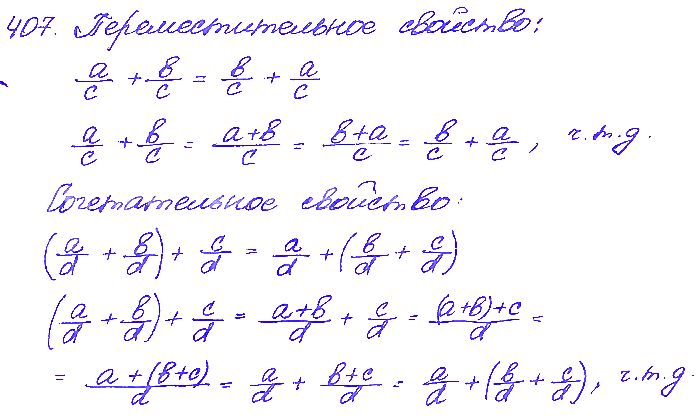 407. Переместительное свойство:
a/c + b/c = b/c + a/c
a/c + b/c = (a+b)/c = (b+a)/c = b/c + a/c, ч.т.д.
Сочетательное свойство:
(a/d + b/d) + c/d = a/d + (b/d + c/d)
(a/d + b/d) + c/d = (a+b)/d + c/d = ((a+b)+c)/d =
= (a+(b+c))/d = a/d + (b+c)/d = a/d + (b/d + c/d), ч.т.д.